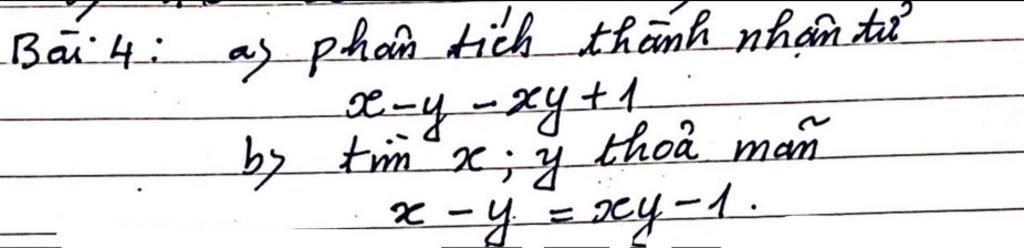 Bài 4: a) phân tích thành nhân tử
x - y - xy + 1
b) tìm x; y thoả mãn
x - y = xy - 1.